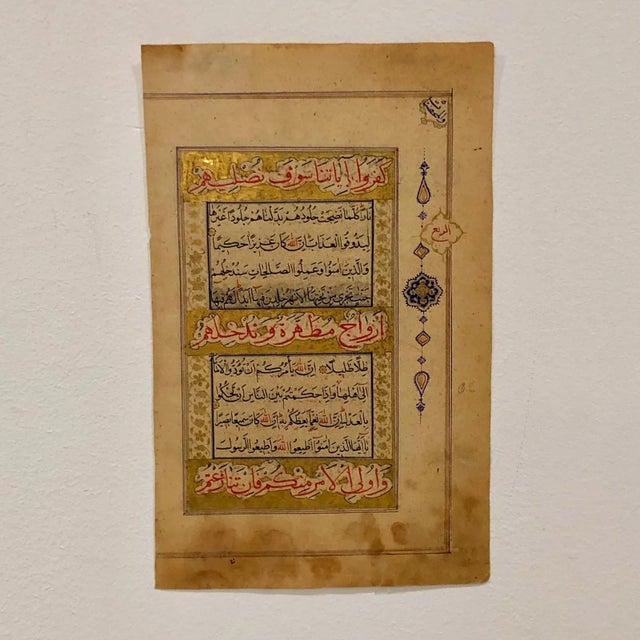 كفروا بآياتنا سوف نصليهم
نارا كلما نضجت جلودهم بدلناهم جلودا غيرها
ليذوقوا العذاب ان الله كان عزيزا حكيما
والذين آمنوا وعملوا الصالحات سندخلهم
جنات تجري من تحتها الانهار خالدين فيها ابدا لهم فيها
ازواج مطهرة وندخلهم
ظلا ظليلا ان الله يأمركم ان تؤدوا الامانات
الى اهلها واذا حكمتم بين الناس ان تحكموا
بالعدل ان الله نعما يعظكم به ان الله كان سميعا بصيرا
يا ايها الذين آمنوا اطيعوا الله واطيعوا الرسول
واولي الامر منكم فان تنازعتم
الربع